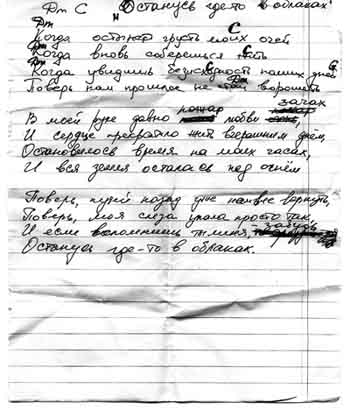 Dm C Останусь где-то в облаках
Dm C
Когда останет грусть моих очей
Dm C
Когда вновь соберешься жить
Dm G
Когда увидишь безысходность наших дней
Dm
Поверь нам прошлое не ворошить
пожар зачах
В моей душе давно любви
И сердце жить вчерашним днём,
Остановилось время на моих часах,
И вся земля осталась под огнём
Поверь, путей назад уже не вернуть,
Поверь, моя слеза упала просто так,
забудь
И если вспомнишь ты меня,
Останусь где-то в облаках.